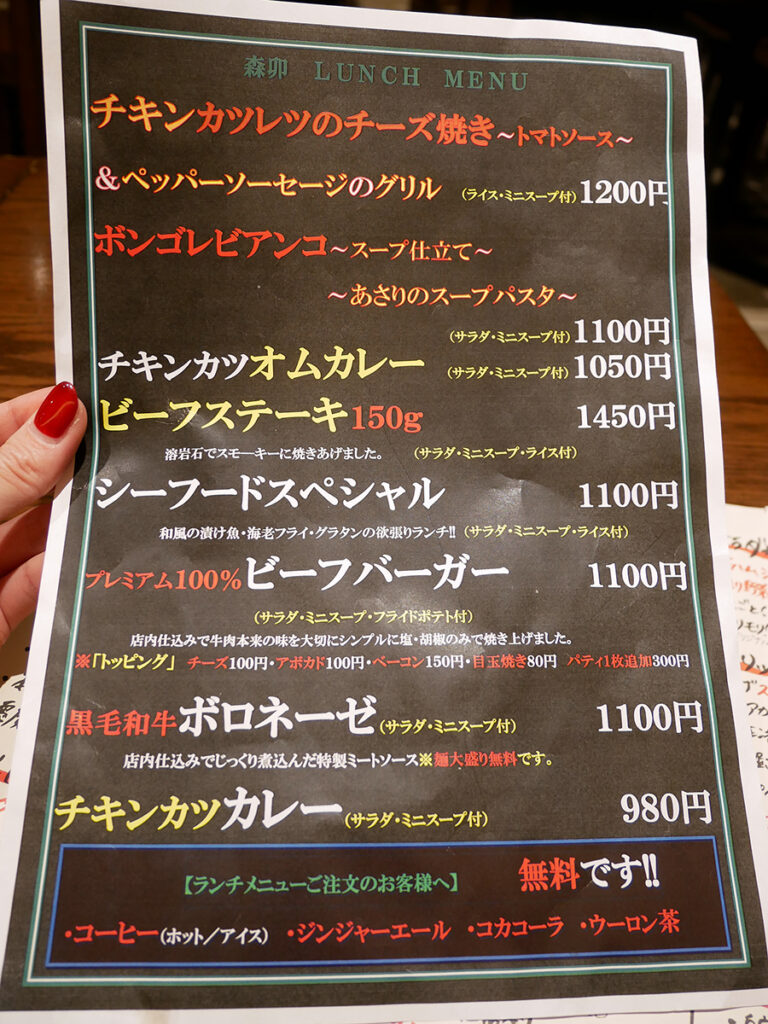 森卯 LUNCH MENU
チキンカツレツのチーズ焼き～トマトソース～
&ペッパーソーセージのグリル (ライス・ミニスープ付) 1200円
ボンゴレビアンコ～スープ仕立て～
～あさりのスープパスタ～
(サラダ・ミニスープ付) 1100円
チキンカツオムカレー (サラダ・ミニスープ付) 1050円
ビーフステーキ150g 1450円
溶岩石でスモーキーに焼きあげました。 (サラダ・ミニスープ・ライス付)
シーフードスペシャル 1100円
和風の漬け魚・海老フライ・グラタンの欲張りランチ!! (サラダ・ミニスープ・ライス付)
プレミアム100%ビーフバーガー 1100円
(サラダ・ミニスープ・フライドポテト付)
店内仕込みで牛肉本来の味を大切にシンプルに塩・胡椒のみで焼き上げました。
※「トッピング」 チーズ100円・アボカド100円・ベーコン150円・目玉焼き80円 パティ1枚追加300円
黒毛和牛ボロネーゼ(サラダ・ミニスープ付) 1100円
店内仕込みでじっくり煮込んだ特製ミートソース※麺大盛り無料です。
チキンカツカレー(サラダ・ミニスープ付) 980円
【ランチメニューご注文のお客様へ】 無料です!!
・コーヒー(ホット／アイス) ・ジンジャーエール ・コカコーラ ・ウーロン茶